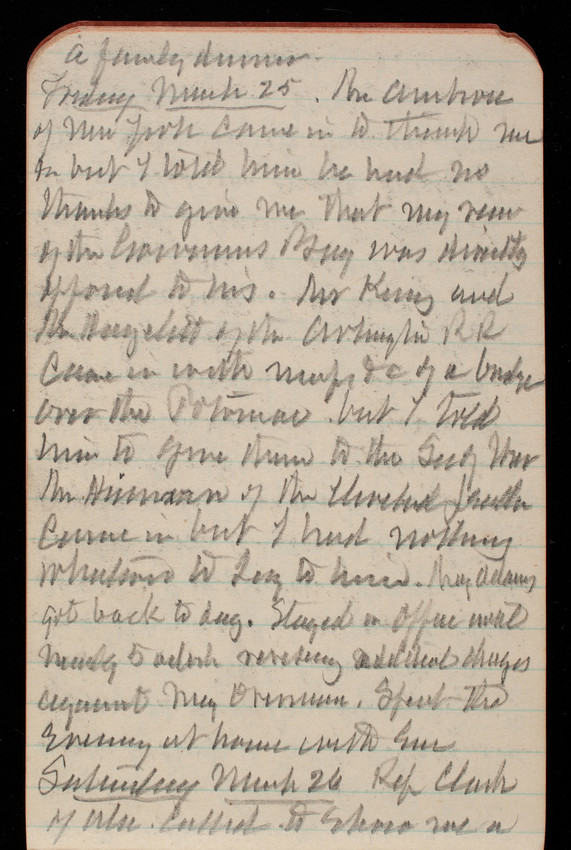 a family dinner.
Friday March 25. Mr Ambrose
of New York came in to thank me
but I told him he had no
thanks to give me that my view
of the Governors was directly
opposed to his. Mr King and
Mr of the Arlington R R
came in with maps &c of a bridge
over the Potomac but I told
him to give them to the Secy War
Mr of the Cleveland Leader
came in but I had nothing
whatever to say to him. Maj Adams
got back to day. Stayed in Office until
nearly 5 oclock reviewing additional charges
against Maj Overman. Spent the
Evening at home with Eva
Saturday March 26 Rep Clark
of called to show me a